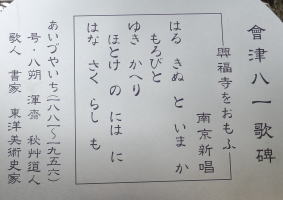 會津八一歌碑
興福寺をおもふ
南京新唱
はる きぬ と いま か
もろびと
ゆき かへり
ほとけ の には に
はな さく らし も
あいづやいち(一八八一〜一九五六)
号・八朔 渾齋 秋艸道人
歌人 書家 東洋美術史家